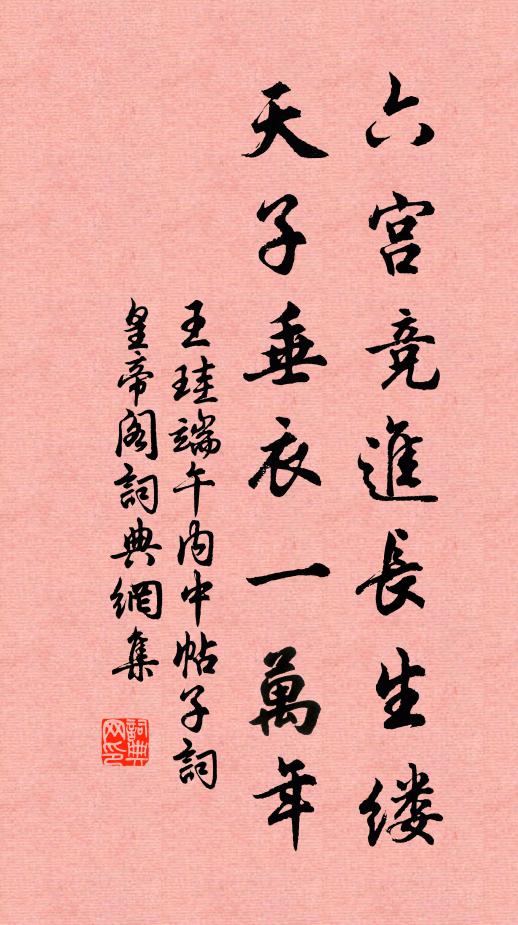 六宫竞進長生缕
天子垂衣一萬年
王珪端午内中帖子詞
皇帝阁詞典網集
詞典网印